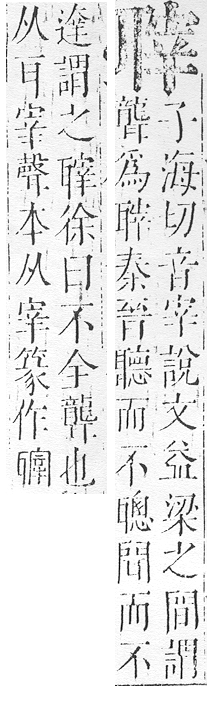 䏁
子海切音宰說文益梁之間謂
聾爲䏁秦晉聽而不聰聞而不
達謂之䏁徐曰不全聾也
从耳宰聲本从宰篆作